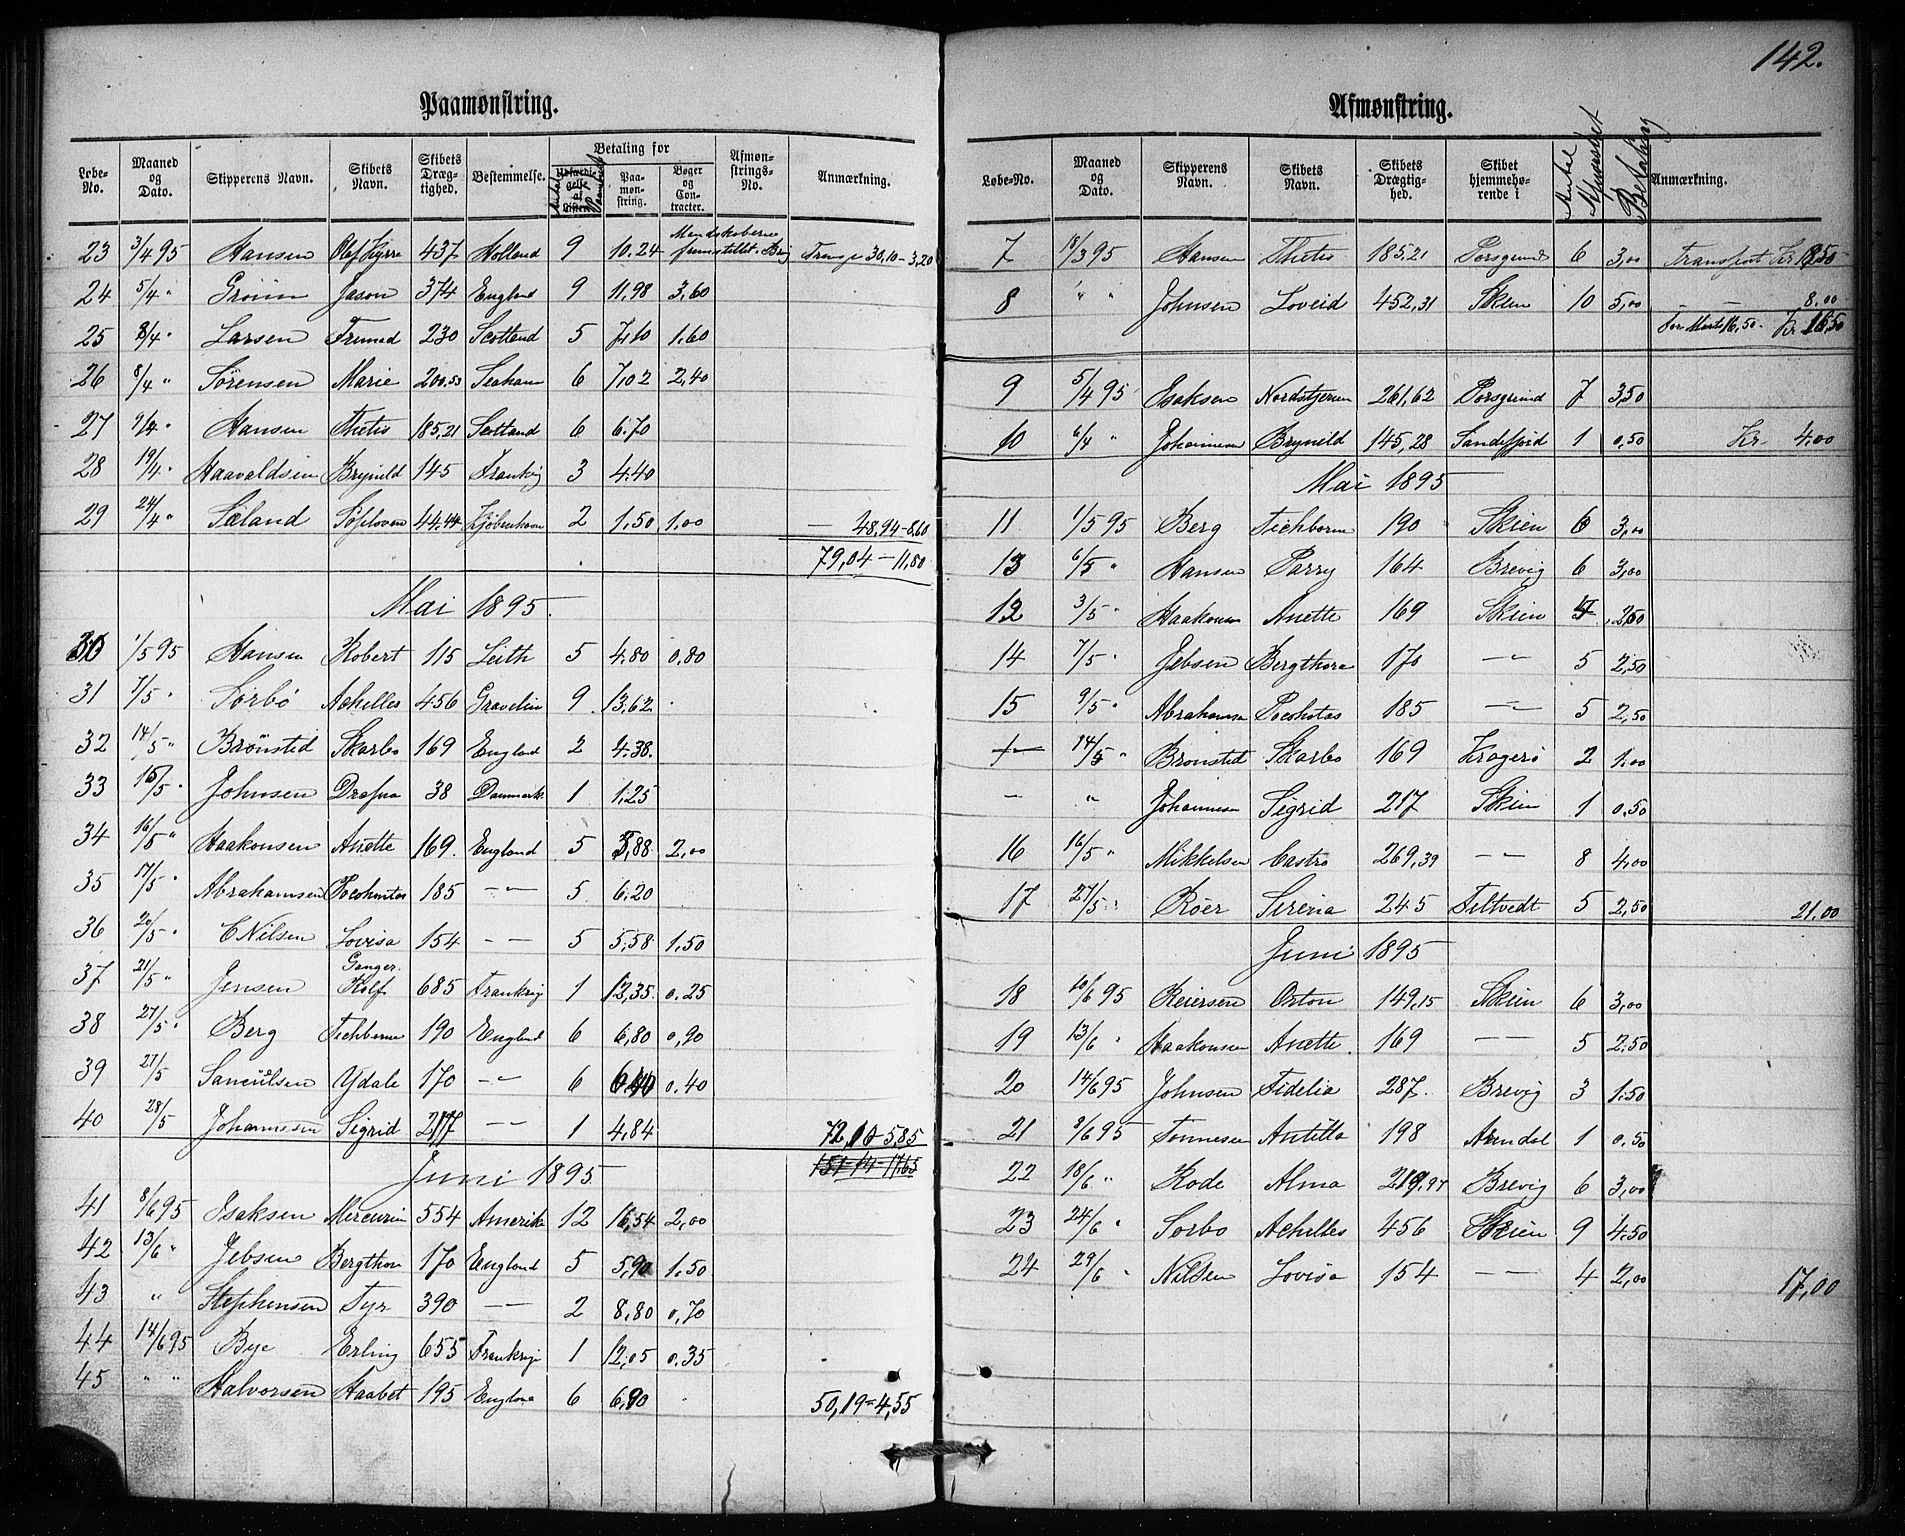 142.
Paamønstring.
Løbe-No. | Maaned og Dato. | Skipperens Navn. | Skibets Navn. | Skibets Dræg-tighed. | Bestemmelse. | Betaling for | Paa-mon-string. | Bøger og Con-tracter. | Afmøn-strings-No. | Anmærkning.
23 | 3/4 95 | Hansen | Olaf Kyrre | 437 | Holland | 9 | 10.24 | Mandskaberne fremstillet i Brig | 30,10 - 3,20
24 | 5/4 " | Grönn | Jason | 374 | England | 9 | 11,98 | 3,60
25 | 8/4 " | Larsen | Fremad | 230 | Scotland | 5 | 7,10 | 1.60
26 | 8/4 " | Sörensen | Marie | 200.53 | Seaham | 6 | 7,02 | 2,40
27 | 9/4 " | Hansen | Thetis | 185,21 | Scotland | 6 | 6.70
28 | 19/4 " | Haavaldsen | Brynild | 145 | Frankrig | 3 | 4.40
29 | 24/4 " | Sæland | Söploven | 44.44 | Kjöbenhavn | 2 | 1,50 | 1,00 | — 48,94 - 8,60
79,04 - 11,80
Mai 1895.
30 | 1/5 95 | Hansen | Robert | 115 | Leith | 5 | 4,80 | 0,80
31 | 7/5 " | Sorbö | Achilles | 456 | Gravelin | 9 | 13,62
32 | 14/5 " | Brönstid | Skarbo | 169 | England | 2 | 4.38
33 | 15/5 " | Johnsen | Drafna | 38 | Danmark | 1 | 1,25
34 | 16/5 " | Haakonsen | Anette | 169. | England | 5 | 5,88 | 2,00
35 | 17/5 " | Abrahamsen | Pocohontas | 185 | —"— | 5 | 6,20
36 | 20/5 " | C Nilsen | Lovisa | 154 | — — | 5 | 5,58 | 1,50
37 | 21/5 " | Jensen | Ganger Rolf | 685 | Frankrig | 1 | 12,35 | 0.25
38 | 27/5 " | Berg | Tichborne | 190 | England | 6 | 6,80 | 0,90
39 | 27/5 | Samuelsen | Ydale | 170 | —"— | 6 | 6,40 | 0.40
40 | 28/5 | Johannesen | Sigrid | 217 | —"— | 1 | 4,84 | 72,10 - 5,85
151-14-17,65
Juni 1895
41 | 8/6 95 | Isaksen | Mercurius | 554 | Amerika | 12 | 16,54 | 2,00
42 | 13/6 " | Jebsen | Bergthora | 170 | England | 5 | 5,90 | 1,50
43 | " | Stephensen | Tyr | 390 | — — | 2 | 8,80 | 0,70
44 | 14/6 95 | Bye | Erling | 655 | Frankrig | 1 | 12,05 | 0.35
45 | " " | Halvorsen | Haabet | 195 | England | 6 | 6,90 | 50,19 - 4,55
Afmønstring.
Løbe-No. | Maaned og Dato. | Skipperens Navn. | Skibets Navn. | Skibets Drægtig-hed. | Skibet hjemmehø-rende i | Antal Mønstret | Betaling | Anmærkning.
7 | 18/3 95 | Hansen | Thetis | 185,21 | Porsgrund | 6 | 3,00 | Transport Kr 8,50
8 | " " | Johnsen | Loveid | 452,31 | Skien | 10 | 5,00 | — — 8.00
For Marts 16,50 - Kr 16,50
9 | 5/4 95 | Isaksen | Nordstjernen | 261,62 | Porsgrund | 7 | 3,50
10 | 6/4 " | Johannesen | Brynild | 145,28 | Sandefjord | 1 | 0,50 | Kr 4,00
Mai 1895
11 | 1/5 95 | Berg | Tichborne | 190 | Skien | 6 | 3,00
13 | 6/5 " | Hansen | Parry | 164 | Brevig | 6 | 3,00
12 | 3/5 " | Haakonsen | Anette | 169 | Skien
14 | 7/5 " | Jebsen | Bergthora | 170 | —"— | 5 | 2,50
15 | 9/5 " | Abrahamsen | Pocohotas | 185 | —"— | 5 | 2,50
— | 14/5 " | Bronstid | Skarbo | 169 | Kragerö | 2 | 1.00
— | " | Johannesen | Sigrid | 217 | Skien | 1 | 0,50
16 | 16/5 " | Mikkelsen | Castro | 269,39 | — — | 8 | 4,00
17 | 27/5 " | Röer | Sirena | 245 | Feltvedt | 5 | 2,50 | 21,00
Juni 1895
18 | 10/6 95 | Reiersen | Orton | 149,15 | Skien | 6 | 3,00
19 | 13/6 " | Haakonsen | Anette | 169 | — — | 5 | 2.50
20 | 14/6 95 | Johnsen | Fidelia | 287. | Brevig | 3 | 1.50
21 | 9/6 95 | Tonnesen | Antilla | 198 | Arndal | 1 | 0.50
22 | 18/6 " | Rode | Alma | 219,97 | Brevig | 6 | 3,00
23 | 24/6 " | Sorbo | Achilles | 456 | Skien | 9 | 4.50
24 | 29/6 " | Nilsen | Lovisa | 154 | — — | 4 | 2,00 | 17,00